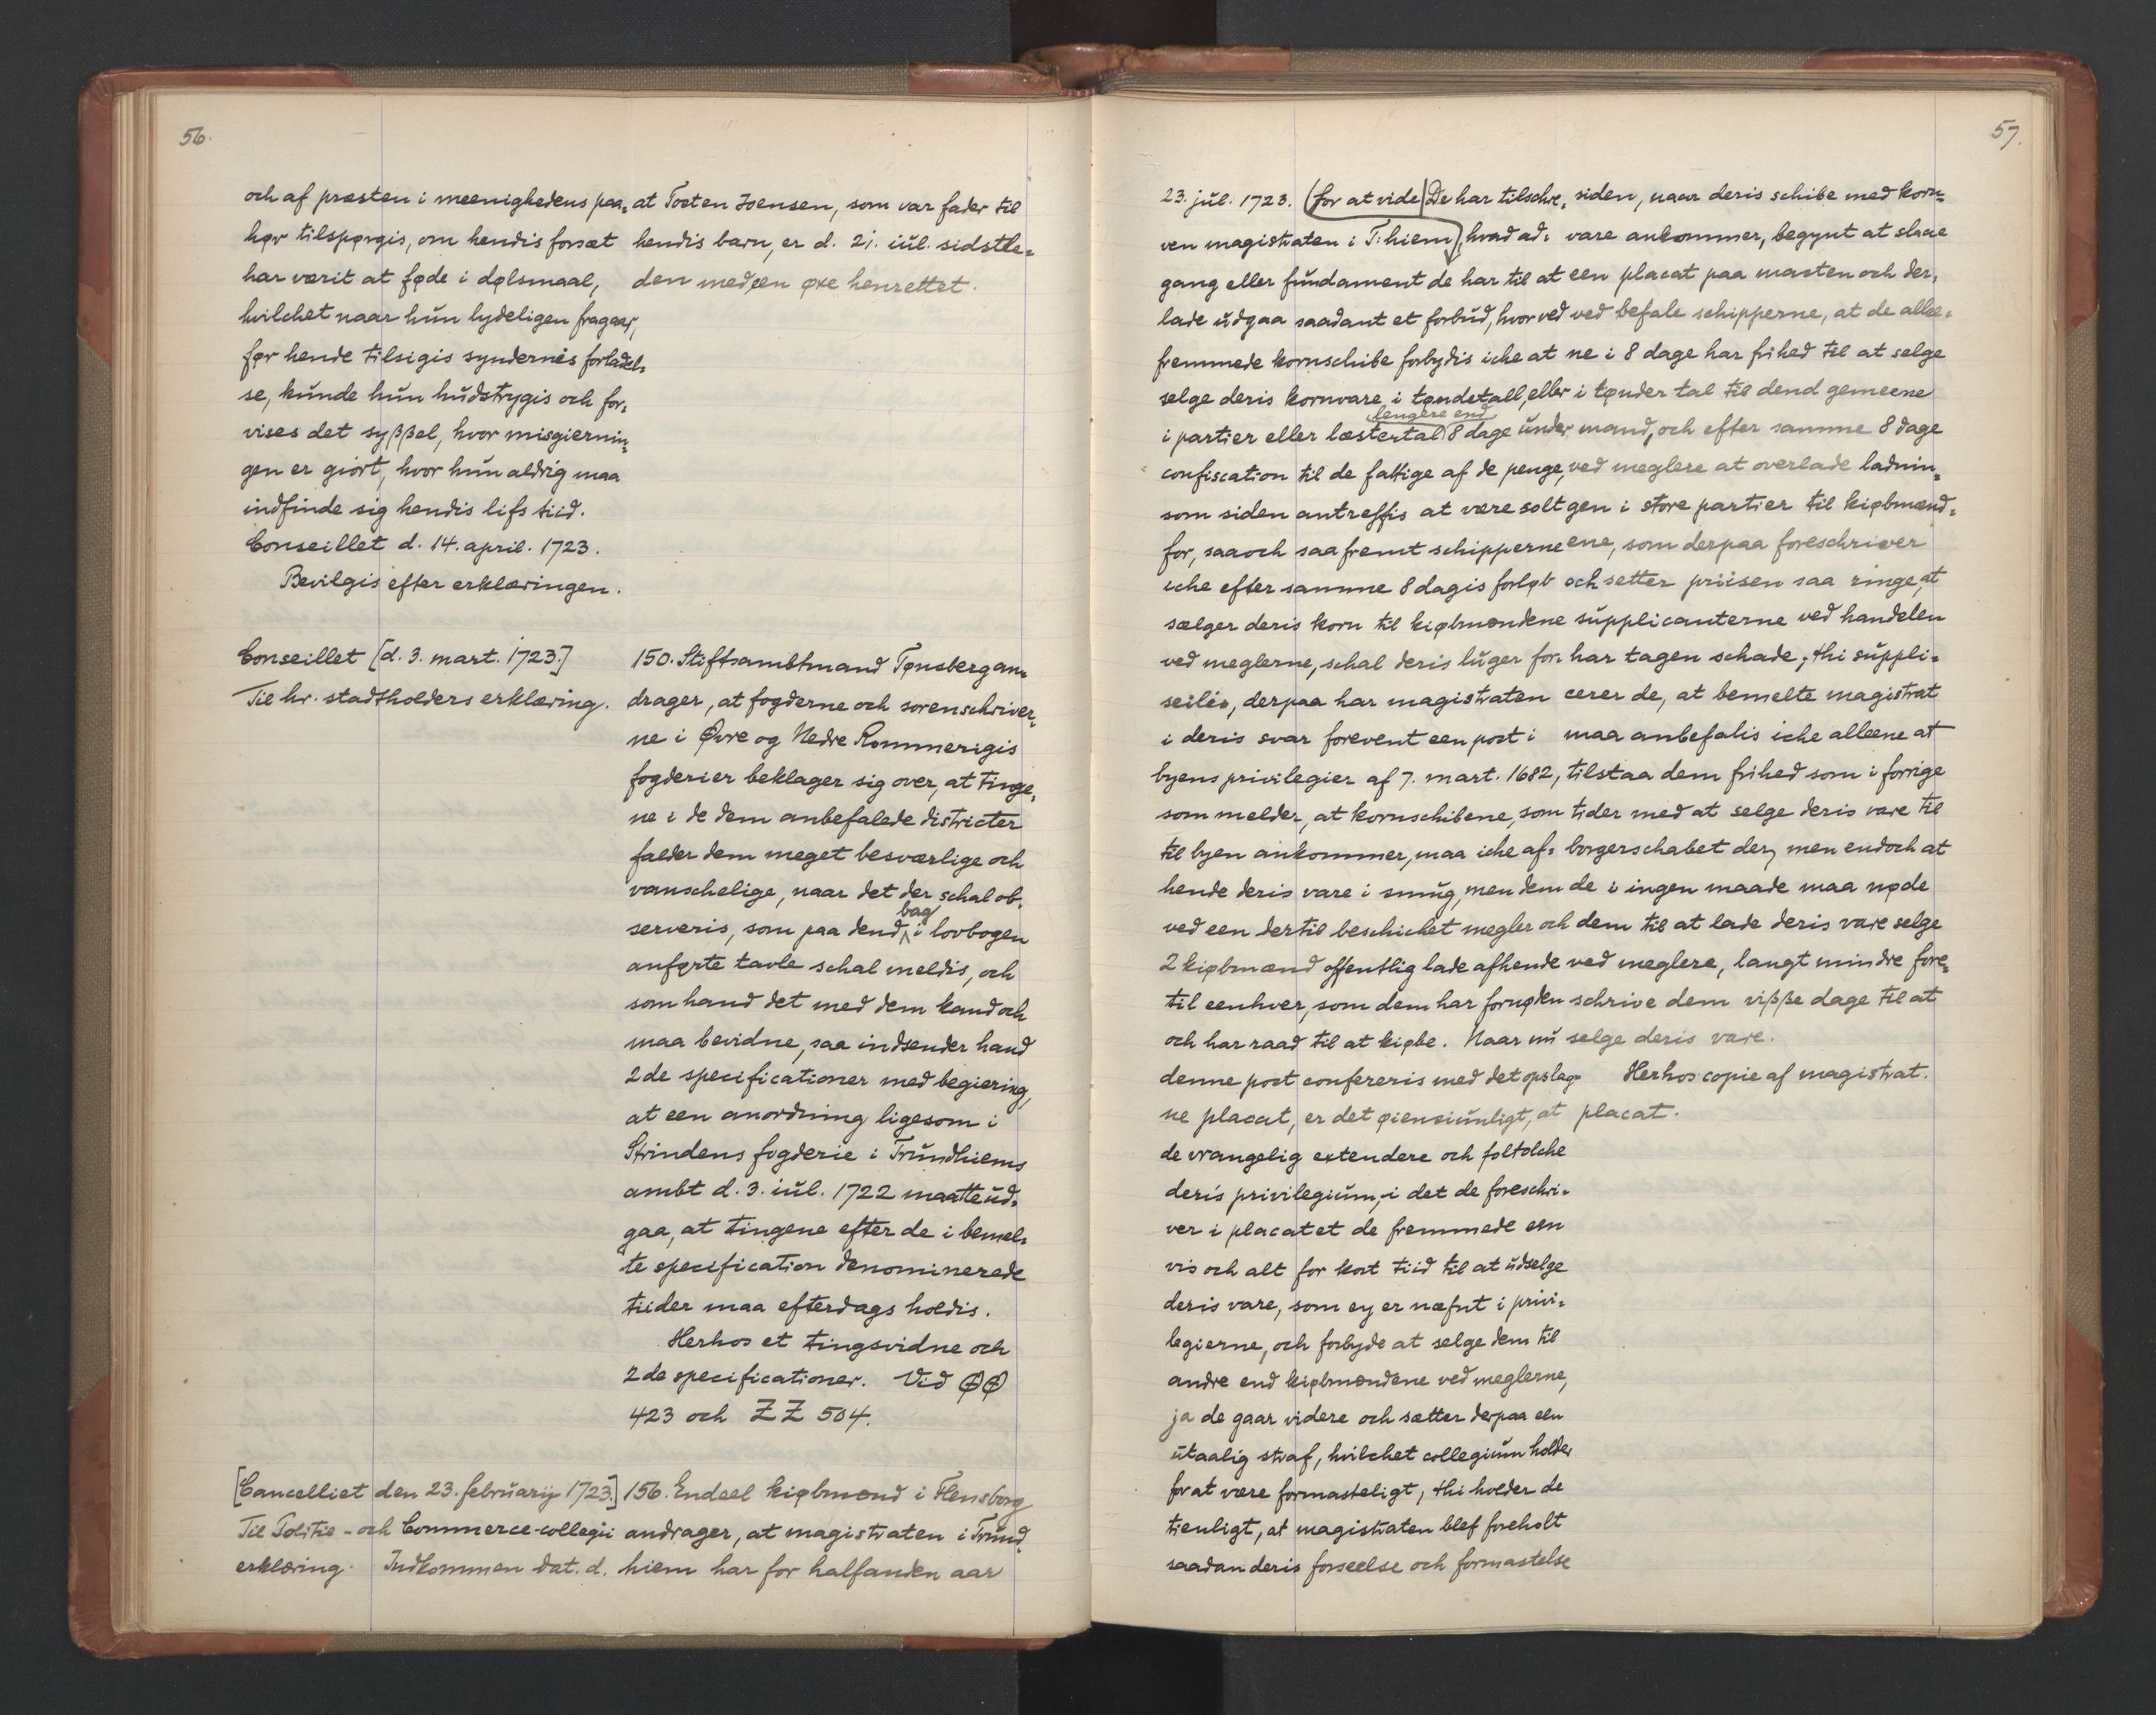 56.
och af præsten i meenighedens paa=
hør tilspørgis, om hendis forsæt
har værit at føde i dølsmaal,
hvilchet naar hun lydeligen fragaar,
før hende tilsigis syndernes forladel=
se, kunde hun hudstrygis och for=
vises det syssel, hvor misgiernin=
gen er giort, hvor hun aldrig maa
indfinde sig hendis lifs tiid.
Conseillet d. 14. april. 1723.
Bevilgis efter erklæringen.
at Tosten Joensen, som var fader til
hendis barn, er d. 21. iul. sidstle=
den med een øxe henrettet.
Conseillet [d. 3. mart. 1723.]
Til hr. stadtholders erklæring.
150. Stiftsambtmand Tønsberg an=
drager, at fogderne och sorenschriver=
ne i Øvre og Nedre Rommerigis
fogderier beklager sig over, at tinge=
ne i de dem anbefalede districter
falder dem meget besværlige och
vanschelige, naar det der schal ob=
serveris, som paa dend bag i lovbogen
anførte tavle schal meldis, och
som hand det med dem kand och
maa bevidne, saa indsender hand
2de specificationer med begiering,
at een anordning ligesom i
Strindens fogderie i Trundhiems
ambt d. 3. iul. 1722 maatte ud=
gaa, at tingene efter de i bemel=
te specification denominerede
tiider maa efterdags holdis.
Herhos et tingsvidne och
2de specificationer. Vid ØØ
423 och ZZ 504.
[Cancelliet den 23. februarij 1723.]
Til Politie- och Commerce-collegii
erklæring. Indkommen dat. d.
156. Endeel kiøbmænd i Flensborg
andrager, at magistraten i Trund=
hiem har for halfanden aar
57.
23. jul. 1723. (for at vide) De har tilschre=
ven magistraten i T:hiem, hvad ad=
gang eller fundament de har til at
lade udgaa saadant et forbud, hvor ved
fremmede kornschibe forbydis iche at
selge deris kornvare i tøndetall, eller
i partier eller læstertal lengere end 8 dage under
confiscation til de fattige af de penge,
som siden antreffis at være solt
for, saa och saa fremt schipperne
iche efter samme 8 dagis forløb
sælger deris korn til kiøbmændene
ved meglerne, schal deris luger for=
seiles, derpaa har magistraten
i deris svar forevent een post i
byens privilegier af 7. mart. 1682,
som melder, at kornschibene, som
til byen ankommer, maa iche af=
hende deris vare i smug, men dem
ved een dertil beschichet megler och
2 kiøbmænd offentlig lade afhende
til eenhver, som dem har fornøden
och har raad til at kiøbe. Naar nu
denne post confereris med det opslag=
ne placat, er det øiensiunligt, at
de vrangelig extendere och foltolche
deris privilegium, i det de foreschri=
ver i placatet de fremmede een
vis och alt for kort tiid til at udselge
deris vare, som ey er næfnt i privi=
legierne, och forbyde at selge dem til
andre end kiøbmændene ved meglerne,
ja de gaar videre och sætter derpaa een
utaalig straf, hvilchet collegium holder
for at være formasteligt, thi holder de
tienligt, at magistraten blef foreholt
saadan deris forseelse och formastelse
siden, naar deris schibe med korn=
vare ankommer, begynt at slaae
een placat paa masten och der=
ved befale schipperne, at de allee=
ne i 8 dage har frihed til at selge
i tønder tal til dend gemeene
mand, och efter samme 8 dage
ved meglere at overlade ladnin=
gen i store partier til kiøbmænd=
ene, som derpaa foreschriver
och setter priisen saa ringe, at
supplicanterne ved handelen
har tagen schade; thi suppli=
cerer de, at bemelte magistrat
maa anbefalis iche alleene at
tilstaa dem frihed som i forrige
tider med at selge deris vare til
borgerschabet der, men endoch at
de i ingen maade maa nøde
dem til at lade deris vare selge
ved meglere, langt mindre fore=
schrive dem visse dage til at
selge deris vare.
Herhos copie af magistrat.
placat.